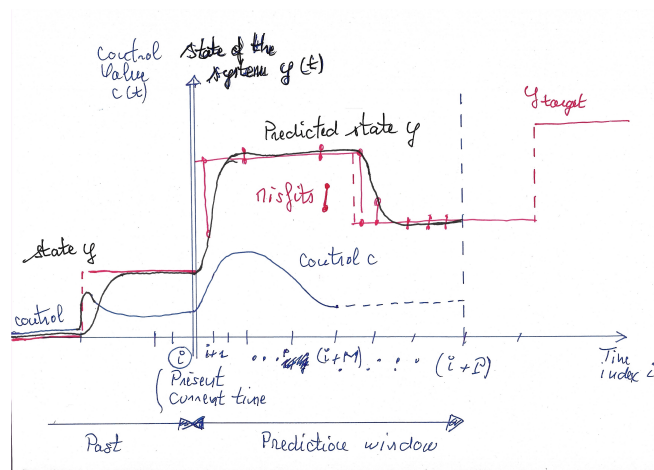 control
value
c(t)
state of the
system y(t)
y target
Predicted state y
misfits
state y
control c
control
i
i+1
(i+M)
(i+P)
Time
index i
Present
current time
Past
Prediction window